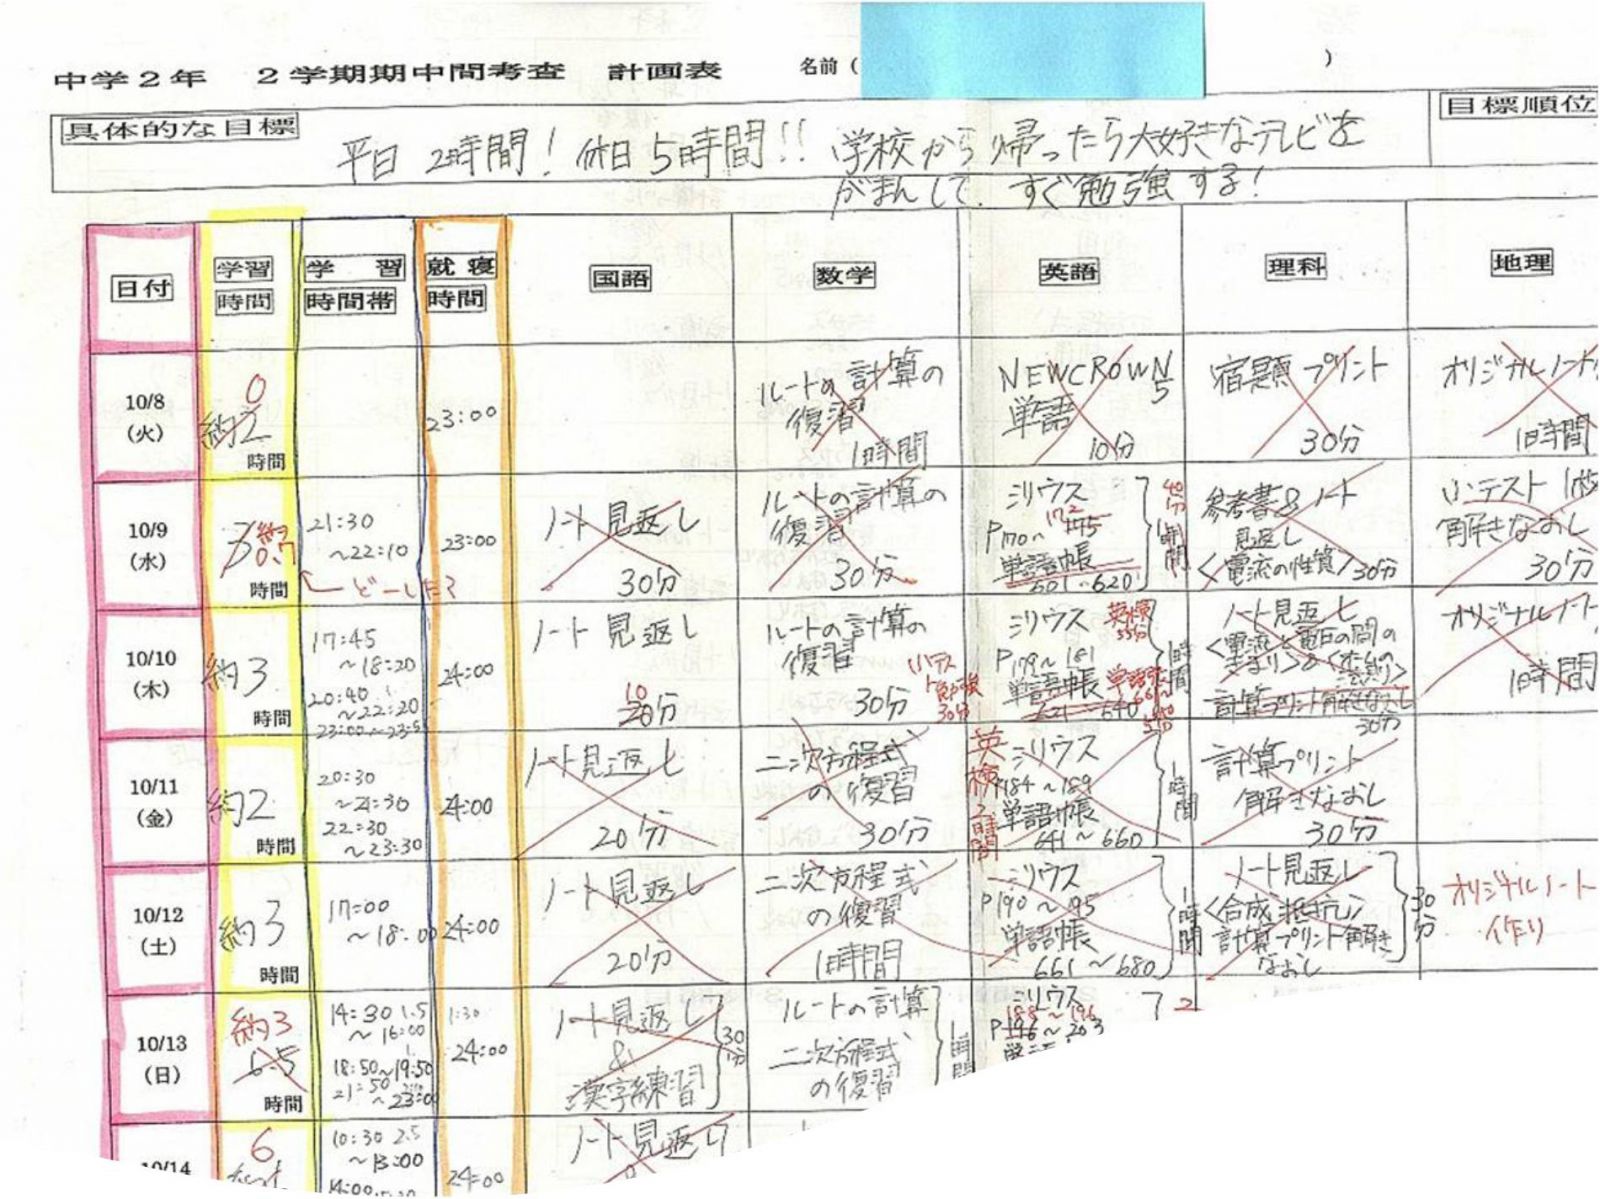 中学2年 2学期期中間考査 計画表 名前( )
具体的な目標
目標順位
平日 2時間! 休日 5時間!! 学校から帰ったら大好きなテレビを
がまんして、すぐ勉強する!
日付
学習
時間
学習
時間帯
就寝
時間
国語
数学
英語
理科
地理
10/8
(火)
0
約2
時間
23:00
ルートの計算の
復習
1時間
NEWCROWN
5
単語
10分
宿題プリント
30分
オリジナルノート
1時間
10/9
(水)
時間
21:30
~22:10
どーした?
23:00
ノート見返し
30分
ルートの計算の
復習
30分
シリウス
172
P170~175
単語帳
601~620
40分
1時間
参考書&ノート
見返し
<電流の性質>30分
解きなおし
30分
10/10
(木)
約3
時間
17:45
~18:20
20:40
~22:20
24:00
ノート見返し
10
20分
ルートの計算の
復習
30分
30分
シリウス
P179~181
単語帳
621~640
英検
1時間
ノート見返し
計算プリント解きなおし
30分
オリジナルノート
1時間
10/11
(金)
約2
時間
20:30
~21:30
22:30
~23:30
24:00
ノート見返し
20分
二次方程式
の復習
30分
英検2時間
シリウス
P184~189
単語帳
641~660
1時間
計算プリント
解きなおし
30分
10/12
(土)
約3
時間
17:00
~18:00
24:00
ノート見返し
20分
二次方程式
の復習
1時間
シリウス
P190~195
単語帳
661~680
1時間
ノート見返し
<合成抵抗>
計算プリント解き
なおし
30分
オリジナルノート
作り
10/13
(日)
約3
6.5
時間
14:30 1.5
~16:00
18:50~19:50
21:50
~23:00
1:30
24:00
ノート見返し
&
漢字練習
30分
ルートの計算
二次方程式
の復習
時間
シリウス
188~196
P196~203
2
10/14
6
10:30 2.5
~13:00
24:00
ノート見返し